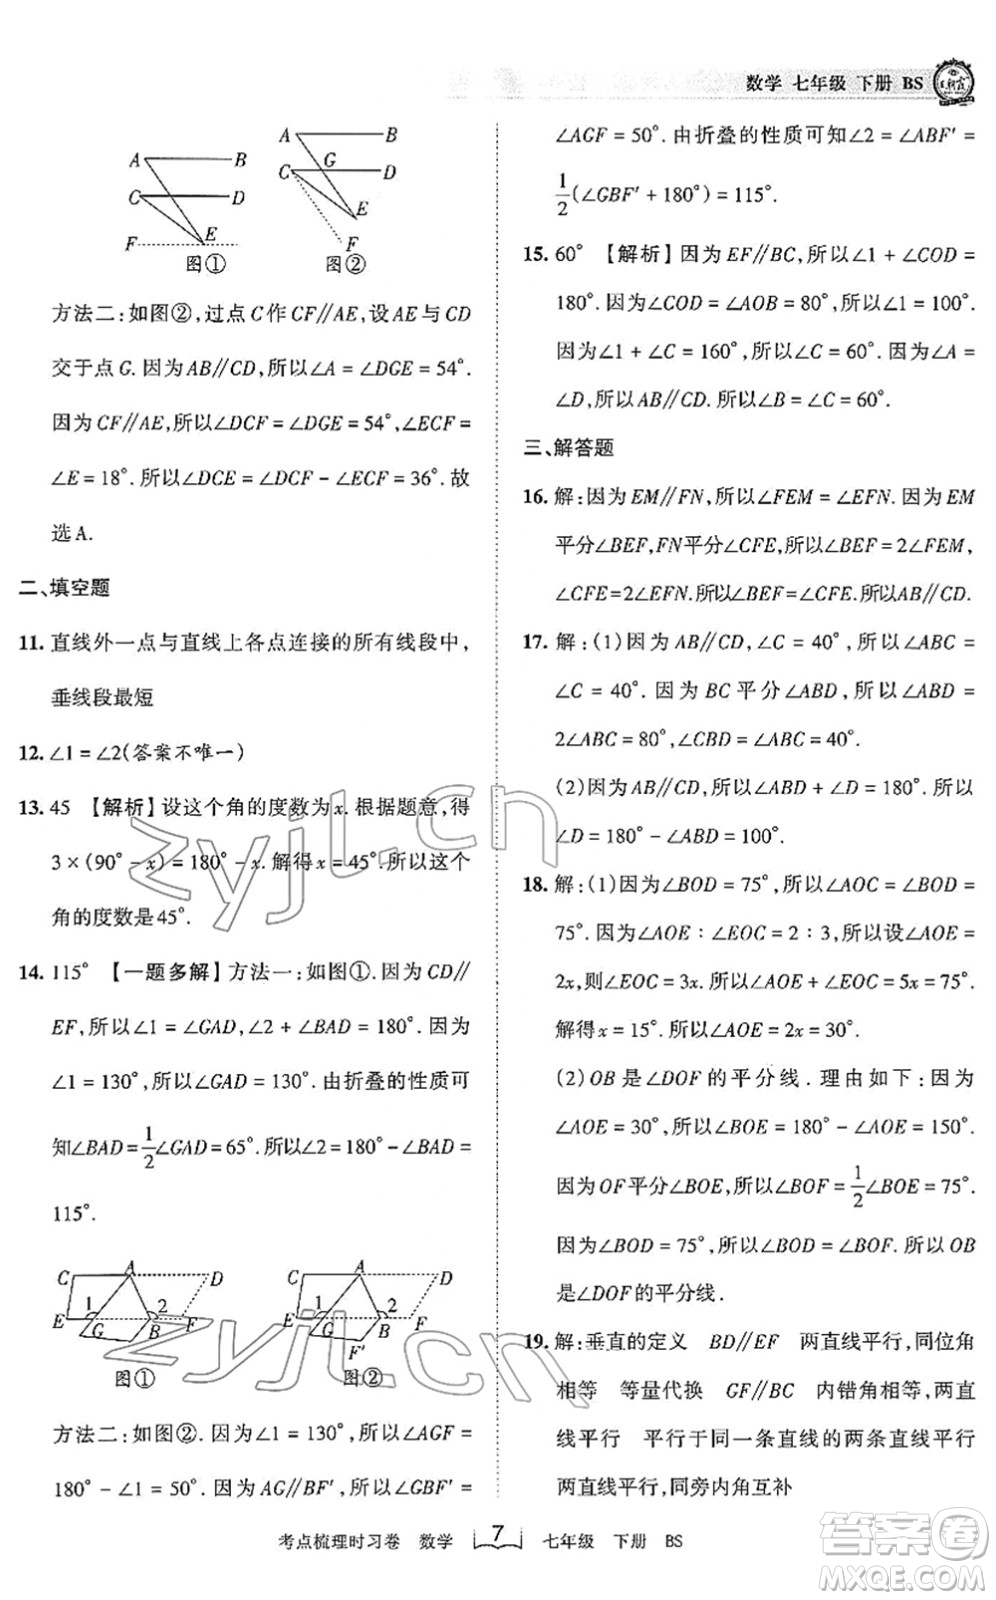 数学 七年级 下册 BS
A B
C D
F E
图①
A B
C G D
E
F
图②
方法二:如图②,过点C作CF∥AE,设AE与CD
交于点G.因为AB∥CD,所以∠A=∠DGE=54°.
因为CF∥AE,所以∠DCF=∠DGE=54°,∠ECF=
∠E=18°.所以∠DCE=∠DCF-∠ECF=36°.故
选A.
二、填空题
11.直线外一点与直线上各点连接的所有线段中,
垂线段最短
12.∠1=∠2(答案不唯一)
13.45 【解析】设这个角的度数为x.根据题意,得
3×(90°-x)=180°-x.解得x=45°.所以这个
角的度数是45°.
14.115° 【一题多解】方法一:如图①.因为CD∥
EF,所以∠1=∠GAD,∠2+∠BAD=180°.因为
∠1=130°,所以∠GAD=130°.由折叠的性质可
知∠BAD=1/2∠GAD=65°.所以∠2=180°-∠BAD=
115°.
C A D
1 2
E G B F
图①
C A D
1 2
E G B F
F′
图②
方法二:如图②.因为∠1=130°,所以∠AGF=
180°-∠1=50°.因为AG∥BF′,所以∠GBF′=
∠AGF=50°.由折叠的性质可知∠2=∠ABF′=
1/2(∠GBF′+180°)=115°.
15.60° 【解析】因为EF∥BC,所以∠1+∠COD=
180°.因为∠COD=∠AOB=80°,所以∠1=100°.
因为∠1+∠C=160°,所以∠C=60°.因为∠A=
∠D,所以AB∥CD.所以∠B=∠C=60°.
三、解答题
16.解:因为EM∥FN,所以∠FEM=∠EFN.因为EM
平分∠BEF,FN平分∠CFE,所以∠BEF=2∠FEM,
∠CFE=2∠EFN.所以∠BEF=∠CFE.所以AB∥CD.
17.解:(1)因为AB∥CD,∠C=40°,所以∠ABC=
∠C=40°.因为BC平分∠ABD,所以∠ABD=
2∠ABC=80°,∠CBD=∠ABC=40°.
(2)因为AB∥CD,所以∠ABD+∠D=180°.所以
∠D=180°-∠ABD=100°.
18.解:(1)因为∠BOD=75°,所以∠AOC=∠BOD=
75°.因为∠AOE∶∠EOC=2∶3,所以设∠AOE=
2x,则∠EOC=3x.所以∠AOE+∠EOC=5x=75°.
解得x=15°.所以∠AOE=2x=30°.
(2)OB是∠DOF的平分线.理由如下:因为
∠AOE=30°,所以∠BOE=180°-∠AOE=150°.
因为OF平分∠BOE,所以∠BOF=1/2∠BOE=75°.
因为∠BOD=75°,所以∠BOD=∠BOF.所以OB
是∠DOF的平分线.
19.解:垂直的定义 BD∥EF 两直线平行,同位角
相等 等量代换 GF∥BC 内错角相等,两直
线平行 平行于同一条直线的两条直线平行
两直线平行,同旁内角互补
考点梳理时习卷 数学 7 七年级 下册 BS
zyjl.cn
zyjl.cn
答案圈
MXQE.COM